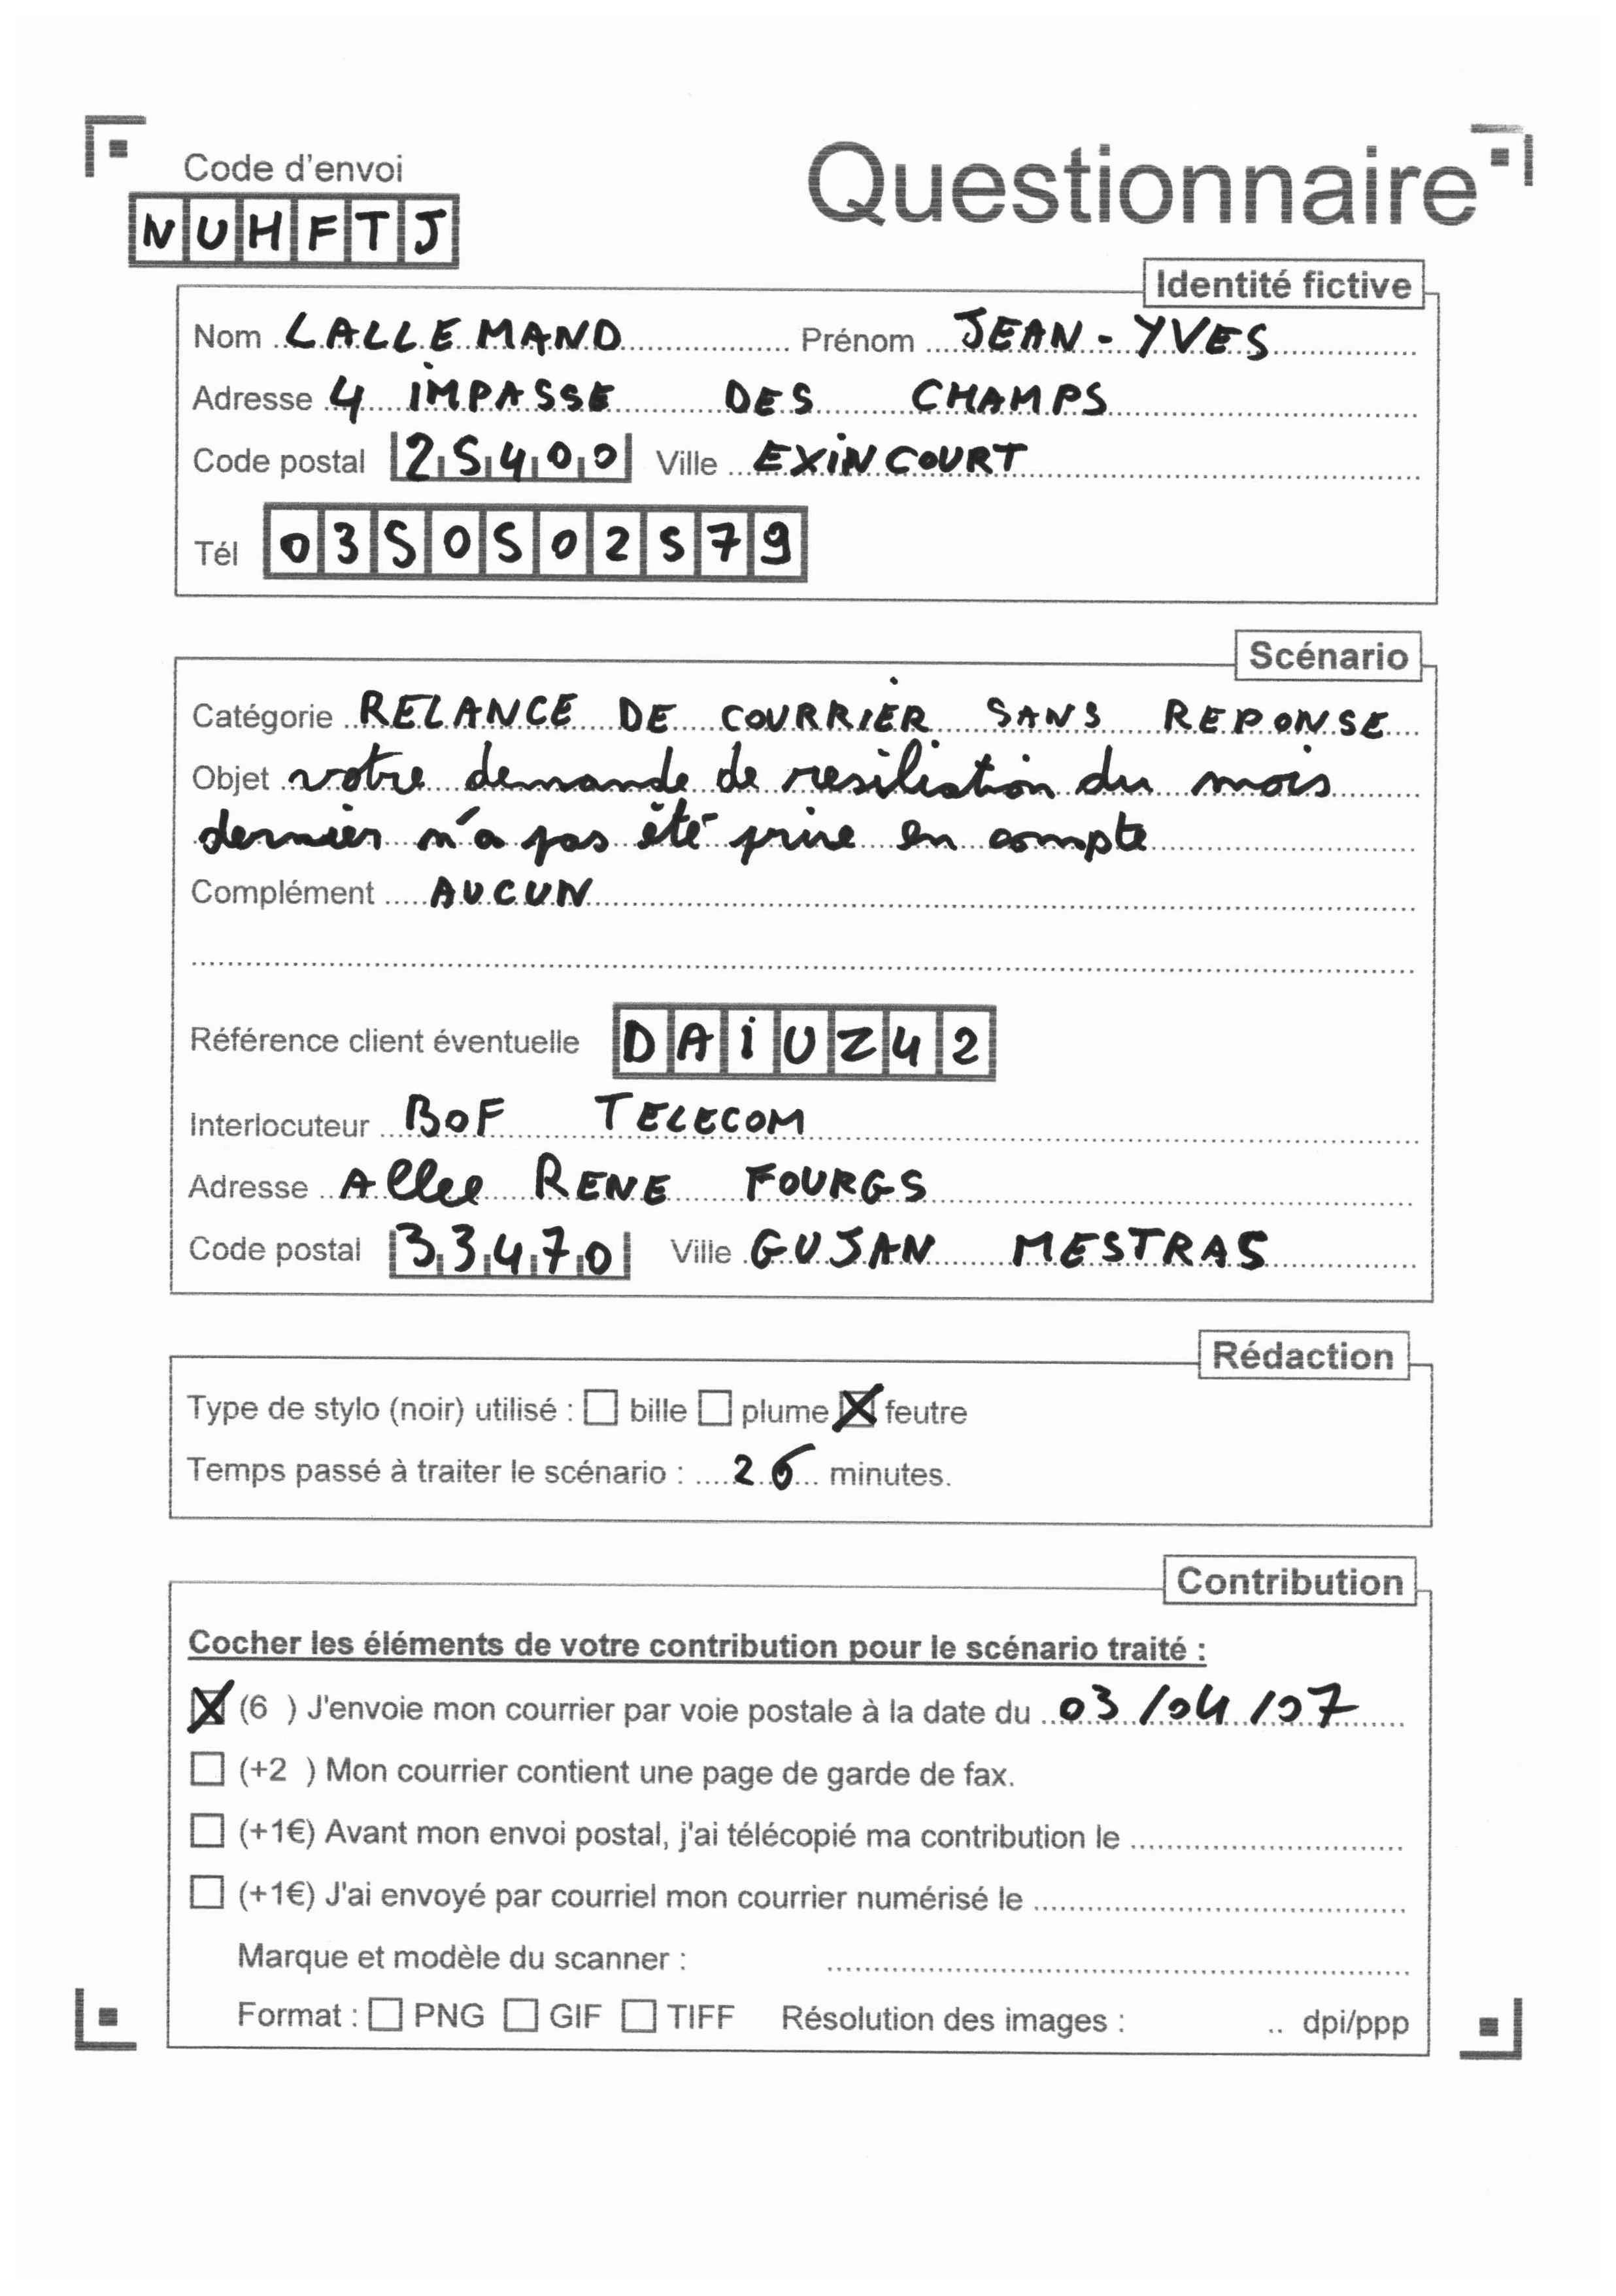 Code d'envoi
NUHFTJ
Questionnaire
Identité fictive
Nom LALLEMAND Prénom JEAN-YVES
Adresse 4 iMPASSE DES CHAMPS
Code postal 25400 Ville EXiNCOURT
Tél 0350502579
Scénario
Catégorie RELANCE DE COURRIER SANS REPONSE
Objet votre demande de resiliation du mois
dernier n'a pas été prise en compte
Complément AUCUN
Référence client éventuelle DAiUZ42
Interlocuteur BOF TELECOM
Adresse Allee RENE FOURGS
Code postal 33470 Ville GUJAN MESTRAS
Rédaction
Type de stylo (noir) utilisé : bille plume feutre
Temps passé à traiter le scénario : 26 minutes.
Contribution
Cocher les éléments de votre contribution pour le scénario traité :
(6 ) J'envoie mon courrier par voie postale à la date du 03/04/07
(+2 ) Mon courrier contient une page de garde de fax.
(+1€) Avant mon envoi postal, j'ai télécopié ma contribution le
(+1€) J'ai envoyé par courriel mon courrier numérisé le
Marque et modèle du scanner :
Format : PNG GIF TIFF Résolution des images : .. dpi/ppp